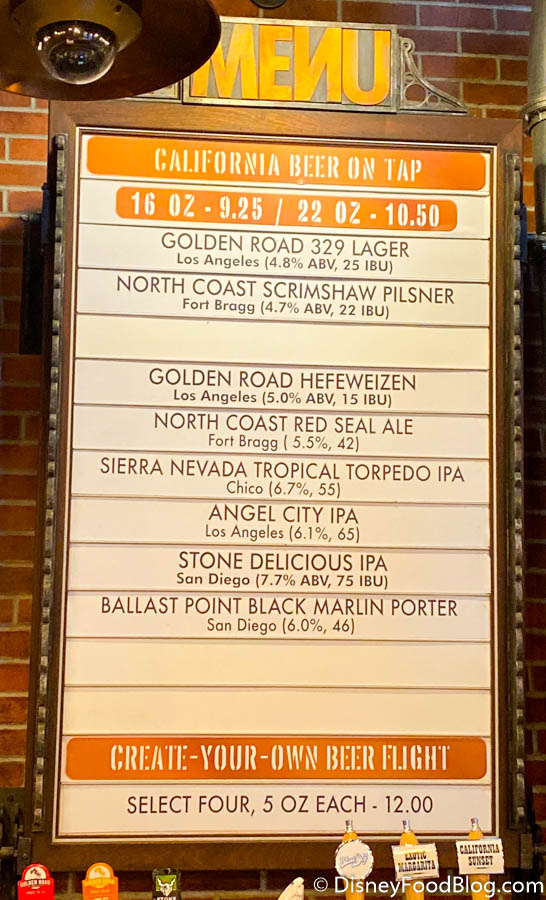 MENU
CALIFORNIA BEER ON TAP
16 OZ - 9.25 / 22 OZ - 10.50
GOLDEN ROAD 329 LAGER
Los Angeles (4.8% ABV, 25 IBU)
NORTH COAST SCRIMSHAW PILSNER
Fort Bragg (4.7% ABV, 22 IBU)
GOLDEN ROAD HEFEWEIZEN
Los Angeles (5.0% ABV, 15 IBU)
NORTH COAST RED SEAL ALE
Fort Bragg ( 5.5%, 42)
SIERRA NEVADA TROPICAL TORPEDO IPA
Chico (6.7%, 55)
ANGEL CITY IPA
Los Angeles (6.1%, 65)
STONE DELICIOUS IPA
San Diego (7.7% ABV, 75 IBU)
BALLAST POINT BLACK MARLIN PORTER
San Diego (6.0%, 46)
CREATE-YOUR-OWN BEER FLIGHT
SELECT FOUR, 5 OZ EACH - 12.00
EXOTIC
MARGARITA
CALIFORNIA
SUNSET
GOLDEN ROAD
GOLDEN ROAD
STONE
© DisneyFoodBlog.com